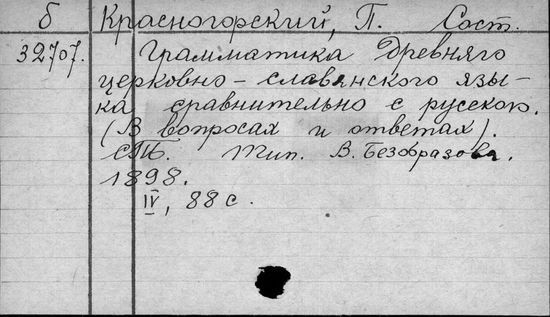 б Красногорский, П. Сост.
32707. Грамматика древняго
церковно-славянского язы-
ка сравнительно с русскою.
(В вопросах и ответах).
СПБ. Тип. В. Безобразова.
1898.
IV, 88 с.